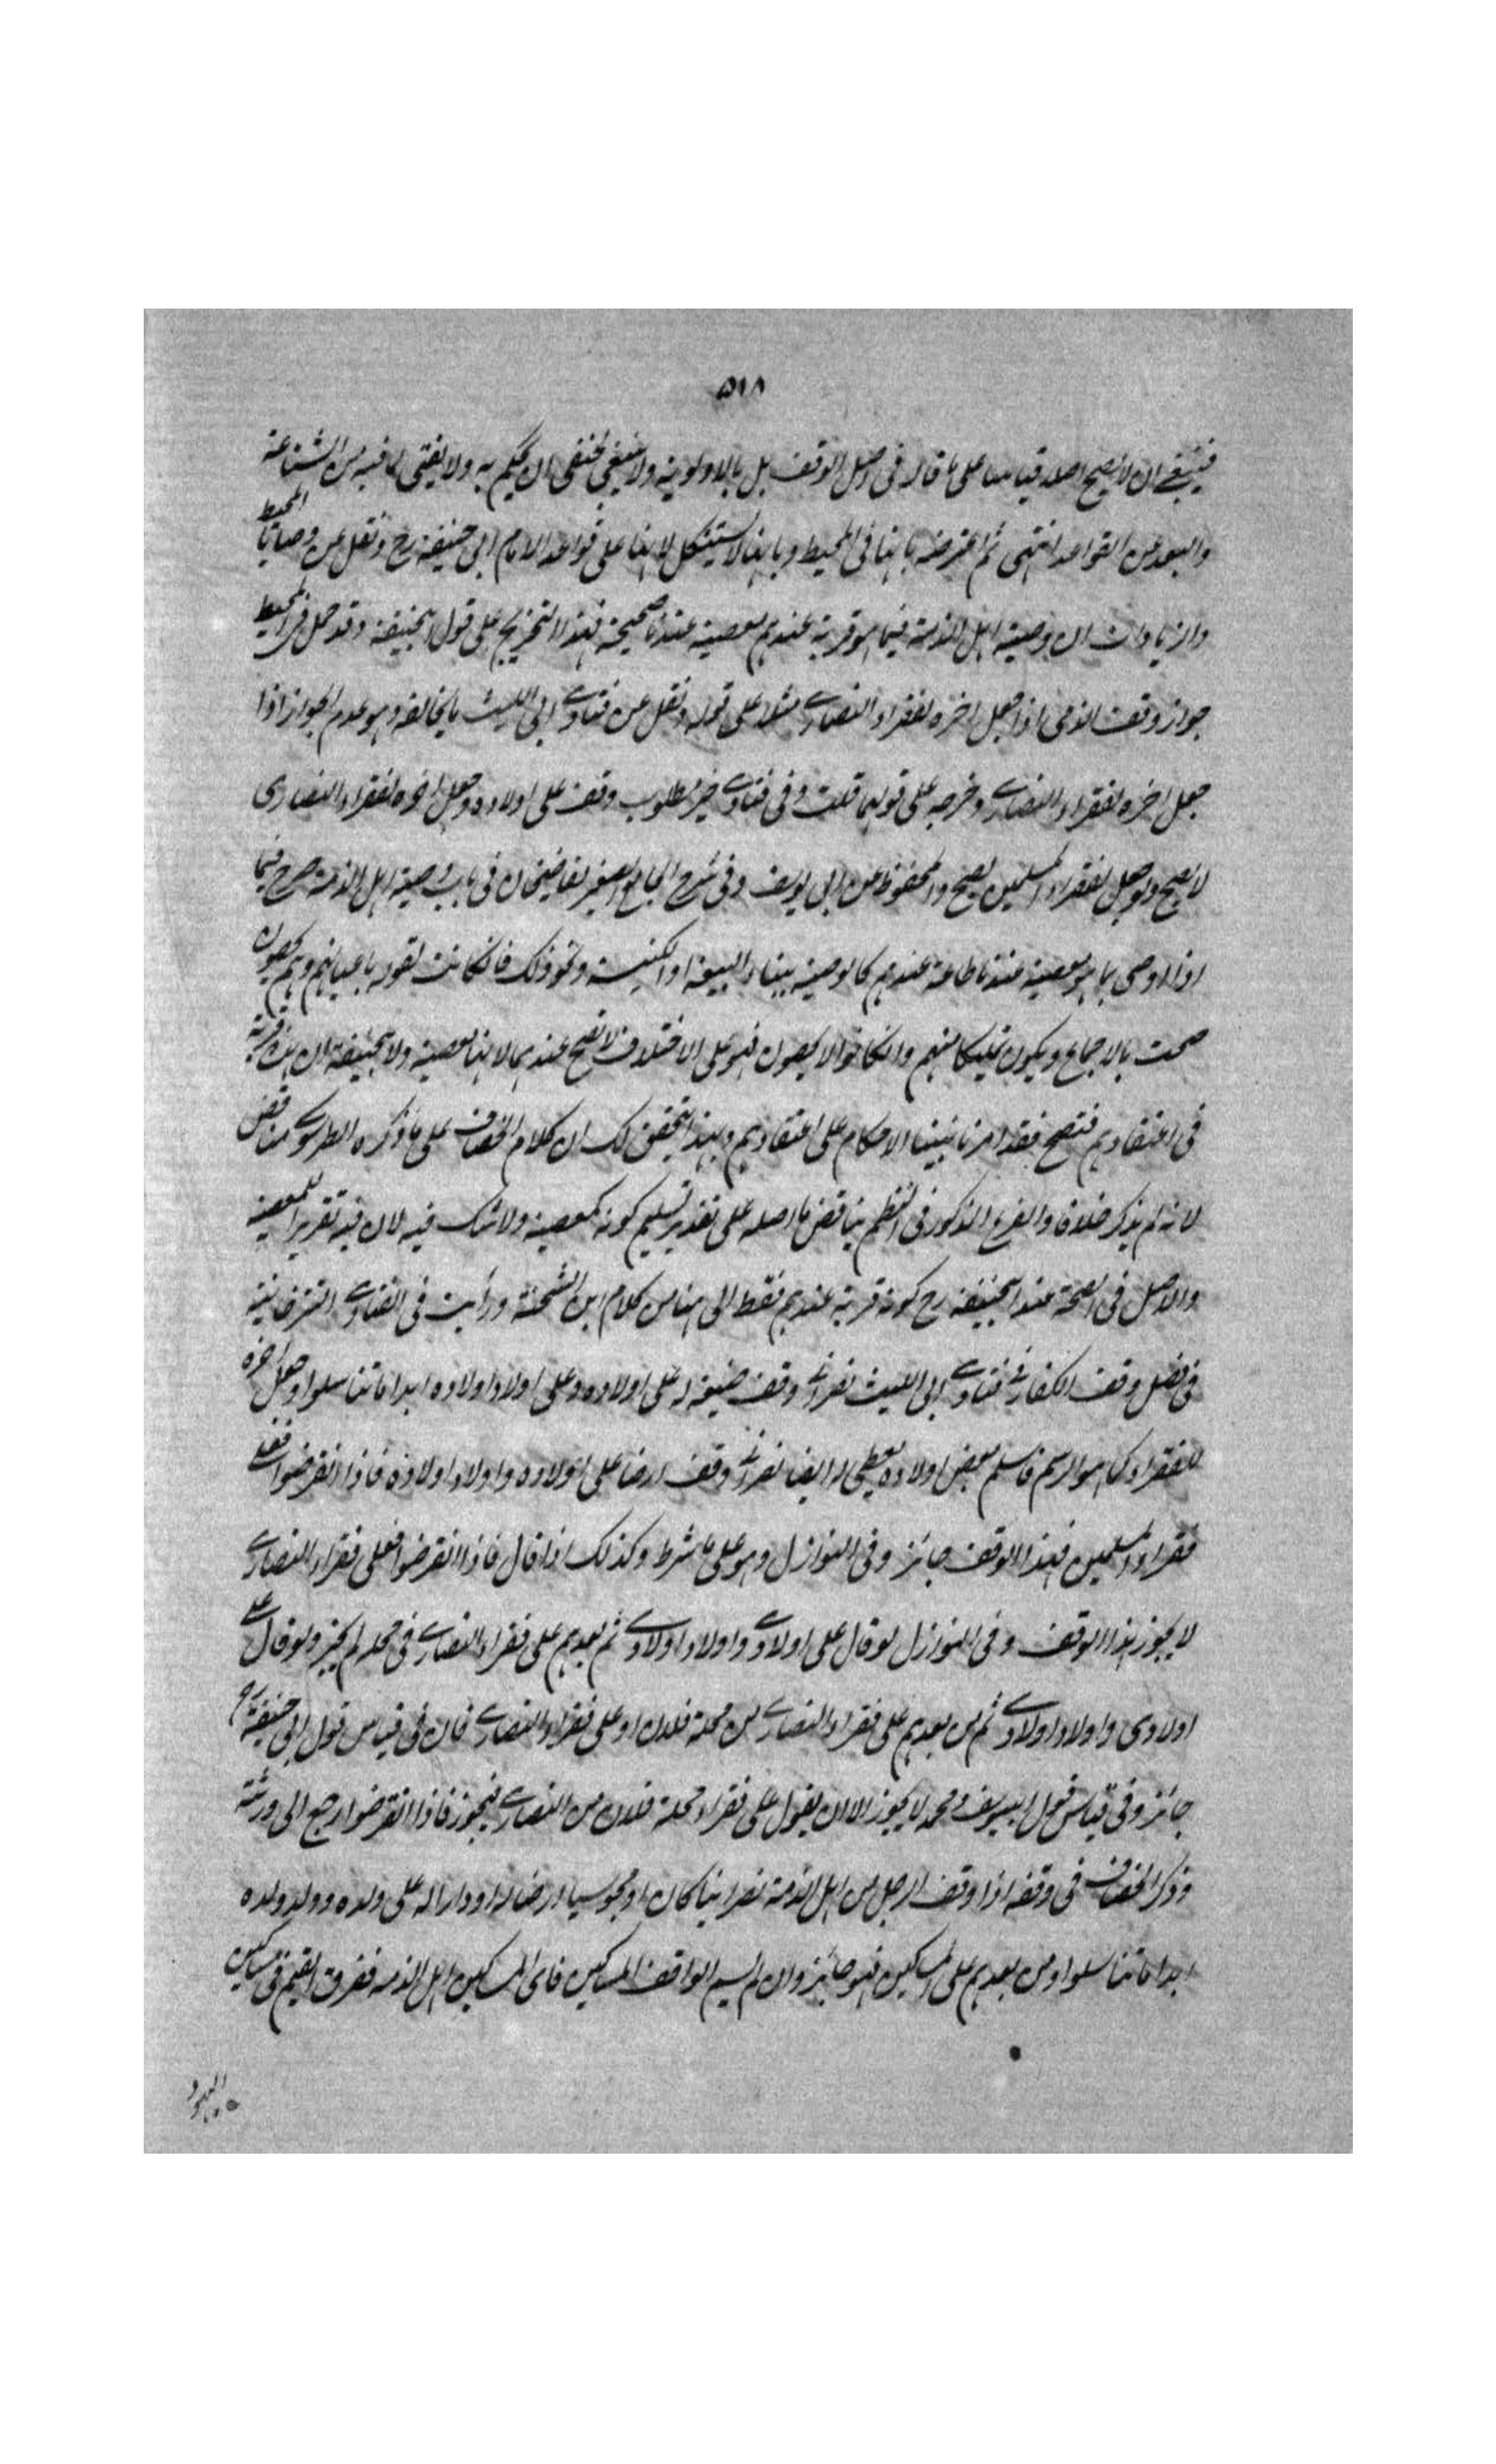 ٥١٨
فينبغي ان لا يصح اصله قياسا على ما قاله في اصل الوقف بل بالاولوية ولا ينبغي لحنفي ان يحكم به ولا يفتي لما فيه من الشناعة
والبعد عن القواعد انتهى ثم اعترضه بانها في المحيط وبانها لا يستشكل لانها على قواعد الامام ابي حنيفة رح ونقل عن وصايا المحيط
والزيادات ان وصية اهل الذمة فيما هو قربة عندهم معصية عندنا صحيحة فهذا التخريج على قول ابيحنيفة وقد حمل في المحيط
جواز وقف الذمي اذا جعل اخره لفقراء النصارى مثلا على قوله ونقل عن فتاوى ابي الليث ما يخالفه وهو عدم الجواز اذا
جعل اخره لفقراء النصارى وخرجه على قولهما قلت وفي فتاوى خير مطلوب وقف على اولاده وجعل اخره لفقراء النصارى
لا يصح ولو جعل لفقراء المسلمين يصح والمحفوظ عن ابي يوسف وفي شرح الجامع الصغير لقاضيخان في باب وصية اهل الذمة صرح فيما
اذا اوصى بما هو معصية عندنا طاعة عندهم كالوصية ببناء البيعة او الكنيسة ونحو ذلك فان كانت لقوم باعيانهم وهم يحصون
صحت بالاجماع ويكون تمليكا منهم وان كانوا لا يحصون فهو على الاختلاف لا تصح عندهما لانها معصية ولابيحنيفة ان هذه قربة
في اعتقادهم فتصح فقد امرنا ببناء الاحكام على اعتقادهم وبهذا يتحقق لك ان كلام الخصاف على ما ذكره الطرسوسي مناقض
لانه لم يذكر خلافا والفرع المذكور في النظم يناقض ما اصله على تقدير تسليم كونه كمعصية ولا شك فيه لان فيه تقرير المعصية
والاصل في الصحة عند ابيحنيفة رح كونه قربة عندهم فقط الى هنا من كلام ابن الشحنة ورأيت في الفتاوى التترخانية
في فصل وقف الكفار في فتاوى ابي الليث نصراني وقف ضيعة له على اولاده وعلى اولاد اولاده ابدا ما تناسلوا وجعل اخره
للفقراء كما هو الرسم فاسلم بعض اولاده يعطى له ايضا نصراني وقف ارضا على اولاده واولاد اولاده فاذا انقرضوا فعلى
فقراء المسلمين فهذا الوقف جائز وفي النوازل وهو على ما شرط وكذلك اذا قال فاذا انقرضوا فعلى فقراء النصارى
لا يجوز هذا الوقف وفي النوازل لو قال على اولادي واولاد اولادي ثم بعدهم على فقراء النصارى في محله لم يجز ولو قال على
اولادي واولاد اولادي ثم من بعدهم على فقراء النصارى من محلة فلان او على فقراء النصارى فان في قياس قول ابي حنيفة رح
جائز وفي قياس قول ابييوسف ومحمد لا يجوز الا ان يقول على فقراء محلة فلان من النصارى فيجوز فاذا انقرضوا رجع الى ورثته
وذكر الخصاف في وقفه اذا وقف الرجل من اهل الذمة نصرانيا كان او مجوسيا ارضا له او دارا له على ولده وولد ولده
ابدا ما تناسلوا ومن بعدهم على المساكين فهو جائز وان لم يسم الواقف المساكين فاي المساكين اهل الذمة ففرق القيم في مساكين
اليهود